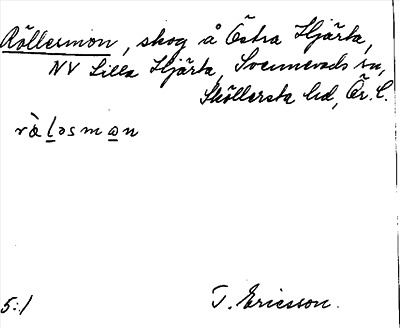 Röllesmon, skog å Östra Hjärta,
NV Lilla Hjärta, Svennevads sn,
Sköllersta hd, Ör. l.
rὰləsmɷn
5:1 T. Ericsson.